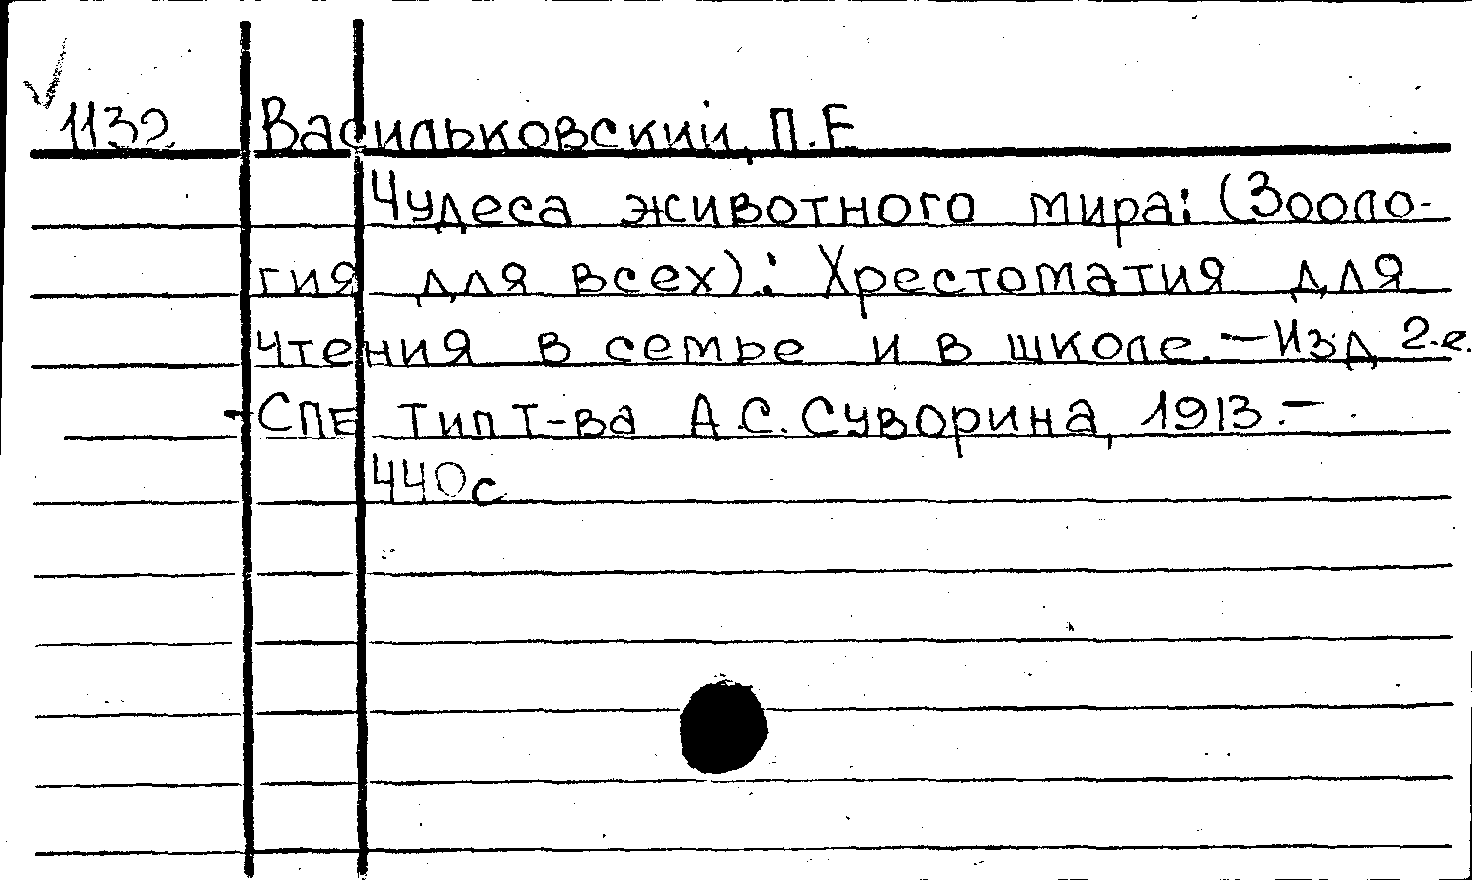 1132 Васильковский, П.Е
Чудеса животного мира: (Зооло-
гия для всех).: Хрестоматия для
чтения в семье и в школе. — Изд 2-е.
- СПБ Тип Т-ва А.С. Суворина, 1913. —
440с